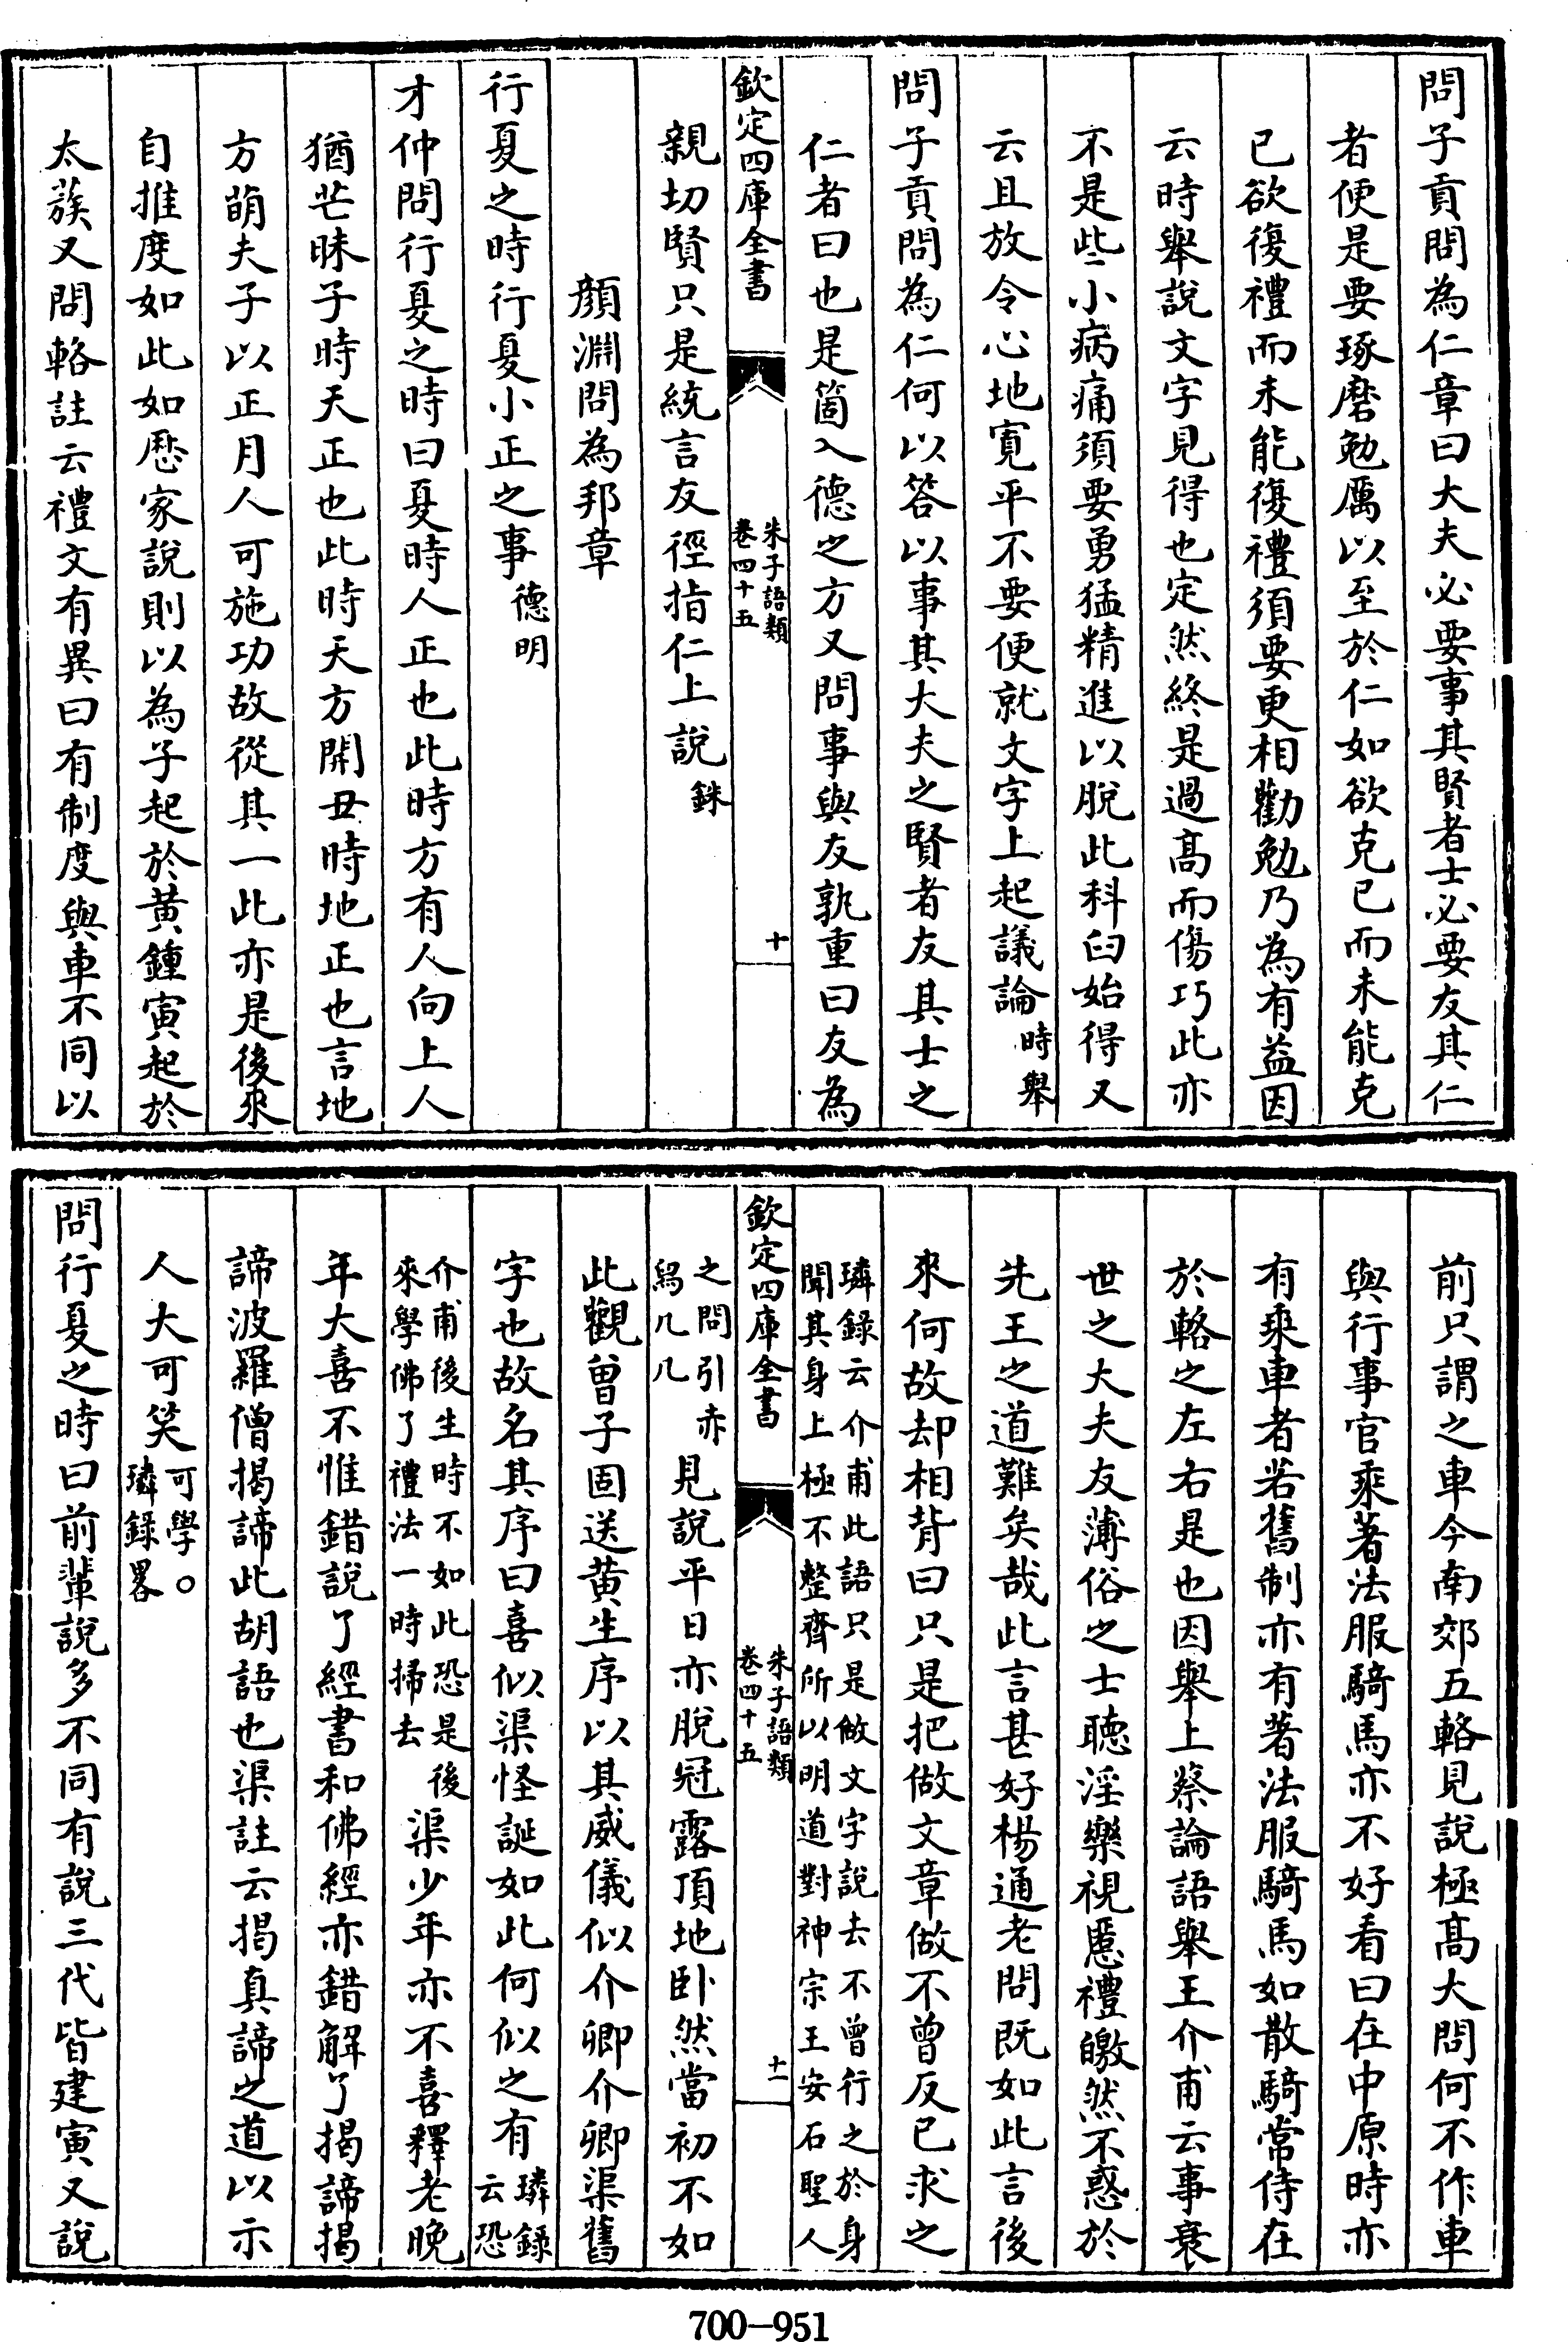 問子貢問為仁章曰大夫必要事其賢者士必要友其仁
者便是要琢磨勉厲以至於仁如欲克已而未能克
已欲復禮而未能復禮須要更相勸勉乃為有益因
云時舉說文字見得也定然終是過髙而傷巧此亦
不是些小病痛須要勇猛精進以脫此科臼始得又
云且放令心地寬平不要便就文字上起議論時舉
問子貢問為仁何以答以事其大夫之賢者友其士之
仁者曰也是箇入德之方又問事與友孰重曰友為
欽定四庫全書
朱子語類
卷四十五
十
親切賢只是統言友徑指仁上說銖
顔淵問為邦章
行夏之時行夏小正之事德明
才仲問行夏之時曰夏時人正也此時方有人向上人
猶芒昧子時天正也此時天方開丑時地正也言地
方萌夫子以正月人可施功故從其一此亦是後來
自推度如此如厯家說則以為子起於黄鍾寅起於
太蔟又問輅註云禮文有異曰有制度與車不同以
前只謂之車今南郊五輅見說極髙大問何不作車
與行事官乘著法服騎馬亦不好看曰在中原時亦
有乘車者若舊制亦有著法服騎馬如散騎常侍在
於輅之左右是也因舉上蔡論語舉王介甫云事衰
世之大夫友薄俗之士聽淫樂視慝禮皦然不惑於
先王之道難矣哉此言甚好楊通老問既如此言後
來何故却相背曰只是把做文章做不曾反已求之
璘錄云介甫此語只是做文字說去不曾行之於身
聞其身上極不整齊所以明道對神宗王安石聖人
欽定四庫全書
朱子語類
卷四十五
十一
之問引赤
舄几几
見說平日亦脫冠露頂地卧然當初不如
此觀曾子固送黄生序以其威儀似介卿介卿渠舊
字也故名其序曰喜似渠怪誕如此何似之有璘錄
云恐
介甫後生時不如此恐是後
來學佛了禮法一時掃去
渠少年亦不喜釋老晚
年大喜不惟錯說了經書和佛經亦錯解了揭諦揭
諦波羅僧揭諦此胡語也渠註云揭真諦之道以示
人大可笑可學○
璘錄畧
問行夏之時曰前輩說多不同有說三代皆建寅又說
700-951